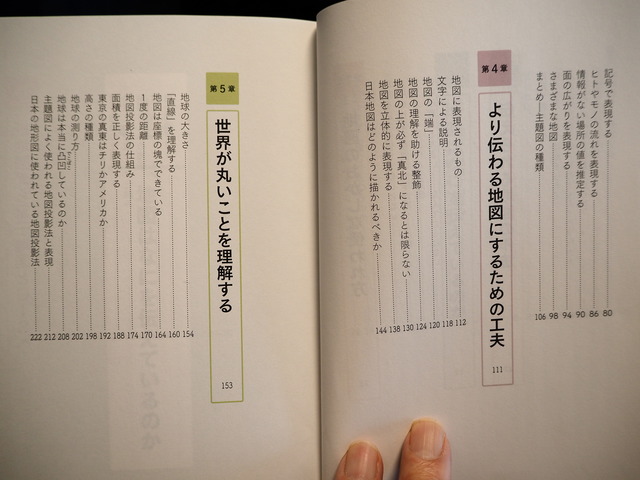 記号で表現する……80
ヒトやモノの流れを表現する……86
情報がない場所の値を推定する……90
面の広がりを表現する……94
さまざまな地図……98
まとめ―主題図の種類……106
第4章
より伝わる地図にするための工夫
111
地図に表現されるもの……112
文字による説明……118
地図の「端」……120
地図の理解を助ける整飾……124
地図の上が必ず「真北」になるとは限らない……130
地図を立体的に表現する……138
日本地図はどのように描かれるべきか……144
第5章
世界が丸いことを理解する
153
地球の大きさ……154
「直線」を理解する……160
地図は座標の塊でできている……164
1度の距離……170
地図投影法の仕組み……174
面積を正しく表現する……188
東京の真東はチリかアメリカか……192
高さの種類……198
地球の測り方……202
地球は本当に凸凹しているのか……208
主題図によく使われる地図投影法と表現……212
日本の地形図に使われている地図投影法……222